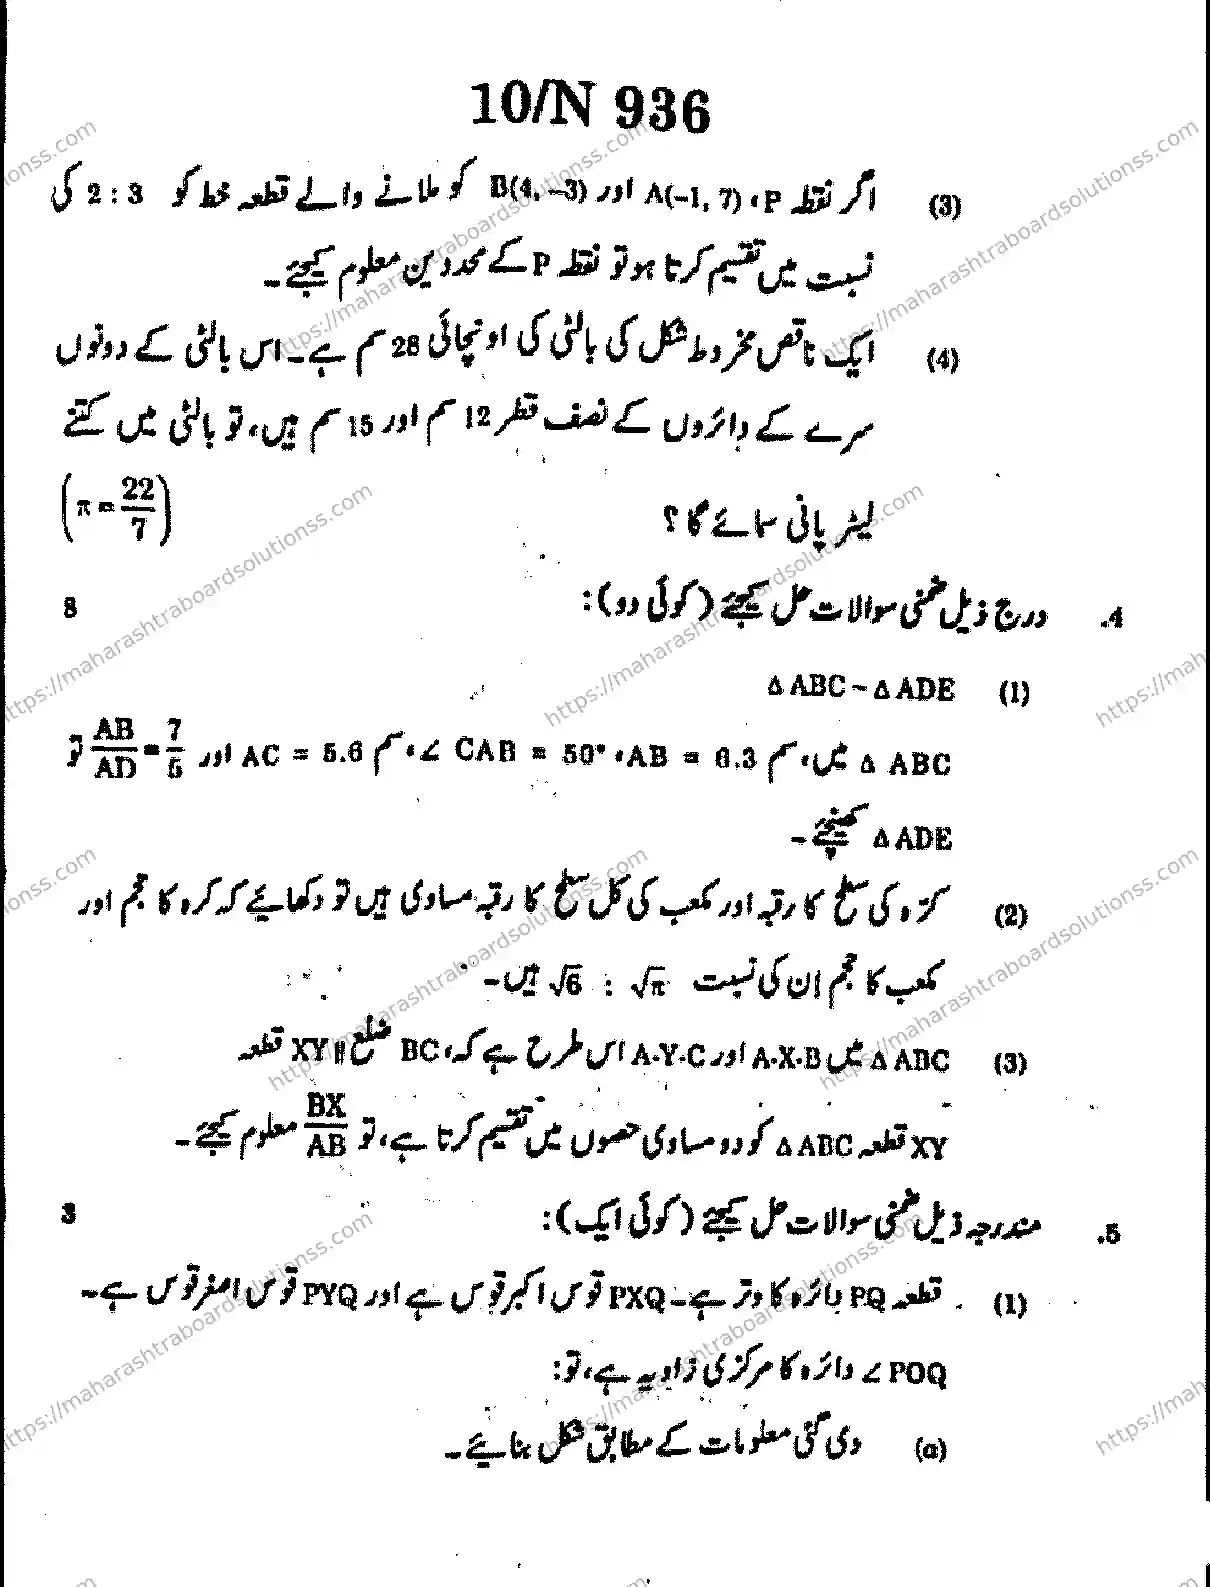 10/N 936
(3) اگر نقطہ P، A(−1, 7) اور B(4, −3) کو ملانے والے قطعہ خط کو 2 : 3 کی
نسبت میں تقسیم کرتا ہو تو نقطہ P کے محددین معلوم کیجیے۔
(4) ایک ناقص مخروط شکل کی بالٹی کی اونچائی 28 سم ہے۔ اس بالٹی کے دونوں
سرے کے دائروں کے نصف قطر 12 سم اور 15 سم ہیں، تو بالٹی میں کتنے
لیٹر پانی سمائے گا؟ (π = 22/7)
4. درج ذیل ضمنی سوالات حل کیجیے (کوئی دو): 8
(1) Δ ABC ~ Δ ADE
Δ ABC میں، سم AB = 6.3، ∠ CAB = 50°، سم AC = 5.6 اور AB/AD = 7/5 تو
Δ ADE کھینچیے۔
(2) کرّہ کی سطح کا رقبہ اور مکعب کی کل سطح کا رقبہ مساوی ہیں تو دکھائیے کہ کرہ کا حجم اور
مکعب کا حجم اِن کی نسبت √6 : √π ہیں۔
(3) Δ ABC میں A-X-B اور A-Y-C اس طرح ہے کہ، ضلع BC || XY قطعہ
XY قطعہ Δ ABC کو دو مساوی حصوں میں تقسیم کرتا ہے، تو BX/AB معلوم کیجیے۔
5. مندرجہ ذیل ضمنی سوالات حل کیجیے (کوئی ایک): 3
(1) قطعہ PQ دائرہ کا وتر ہے۔ PXQ قوس اکبر قوس ہے اور PYQ قوس اصغر قوس ہے۔
∠ POQ دائرہ کا مرکزی زاویہ ہے، تو:
(a) دی گئی معلومات کے مطابق شکل بنائیے۔
https://maharashtraboardsolutionss.com